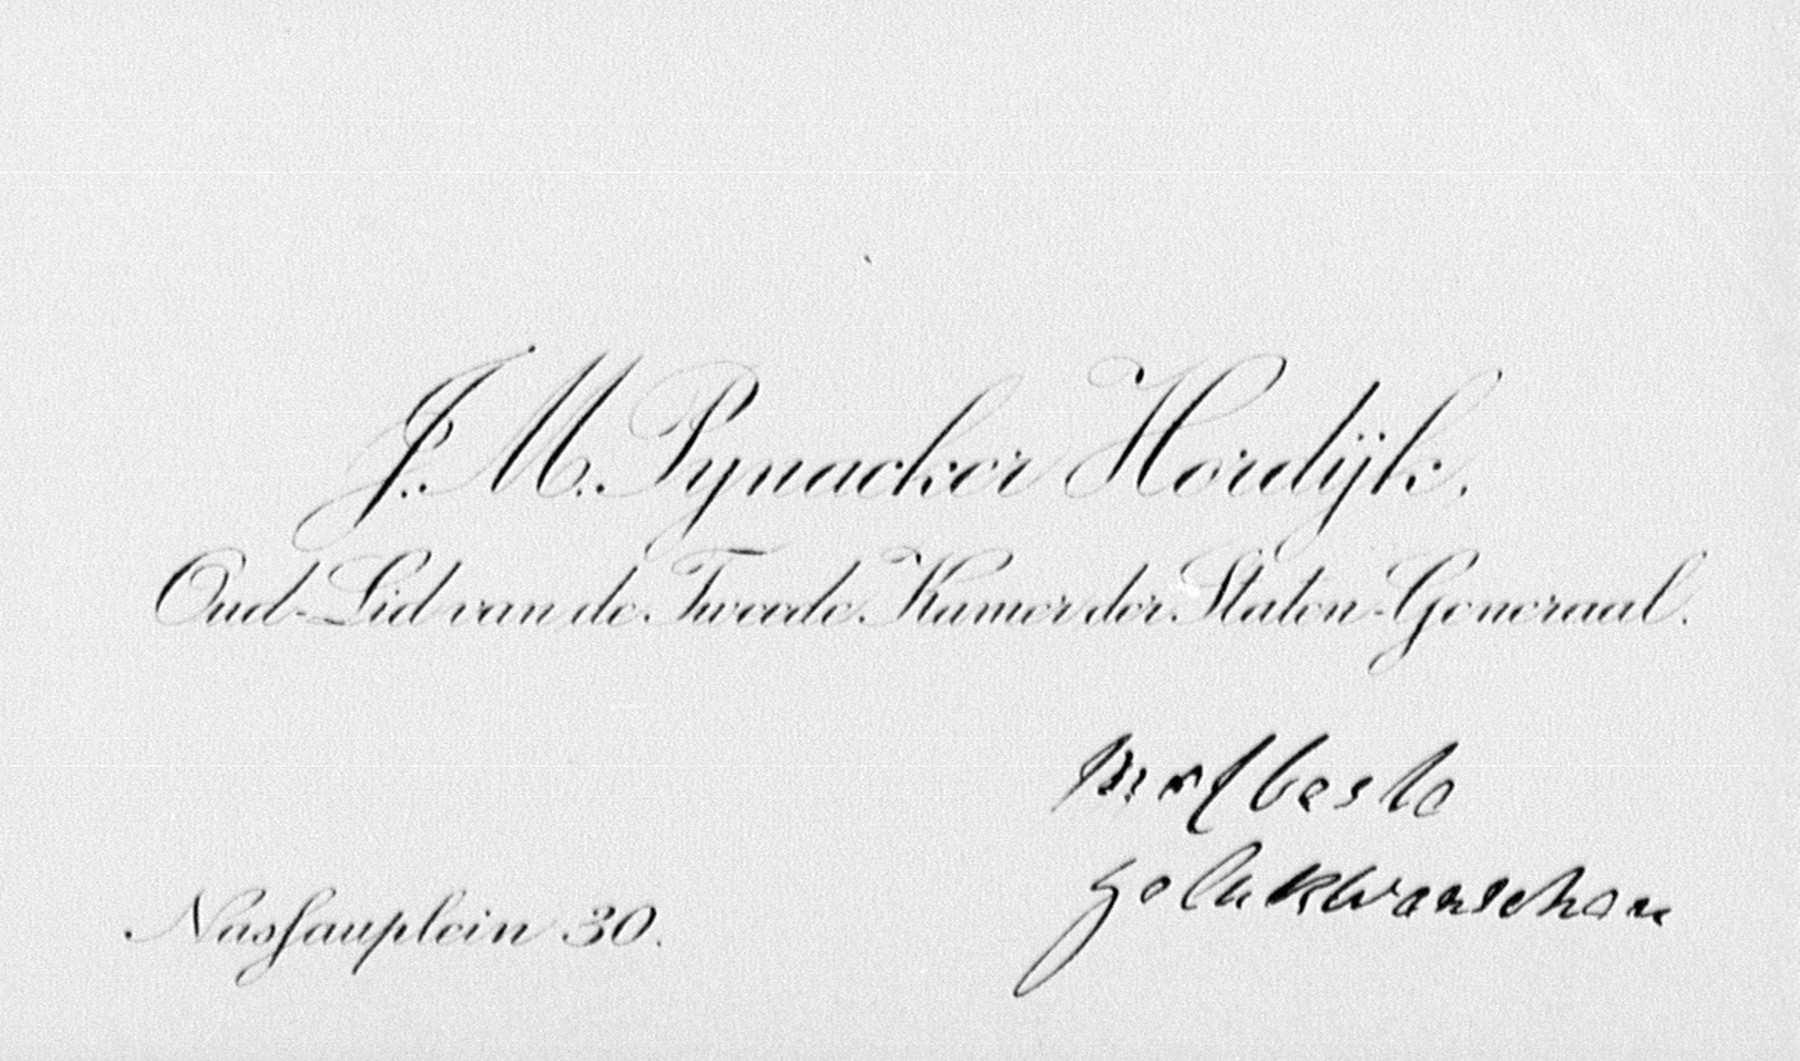 J. M. Pynacker Hordijk.
Oud-Lid van de Tweede Kamer der Staten-Generaal.
met beste
gelukwenschen
Nassauplein 30.